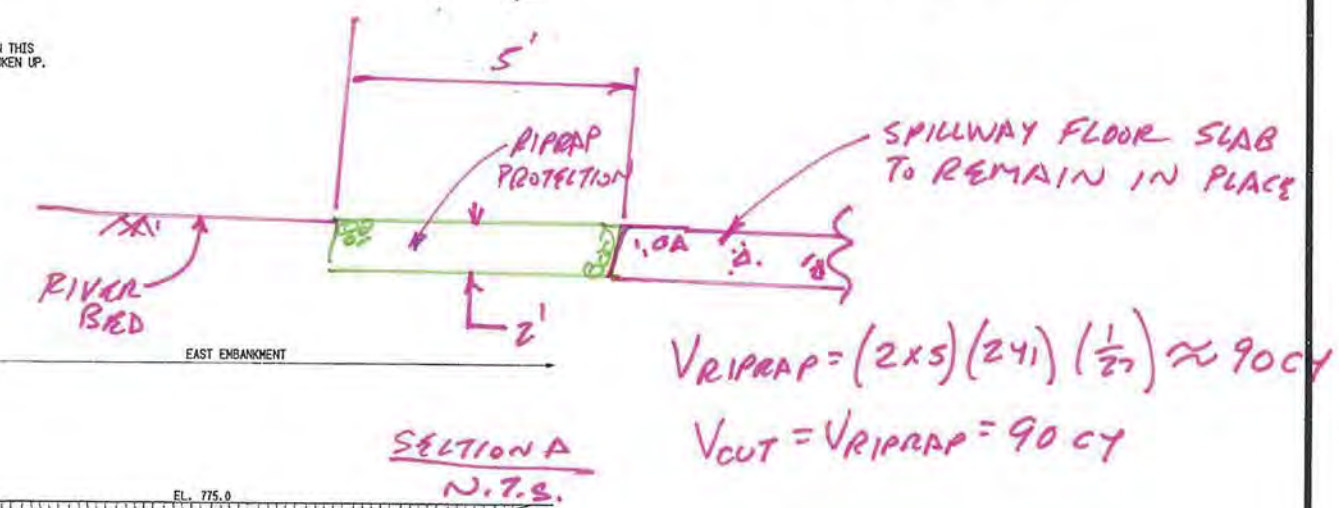 N THIS
KEN UP.
5'
RIPRAP
PROTECTION
SPILLWAY FLOOR SLAB
TO REMAIN IN PLACE
RIVER
BED
2'
EAST EMBANKMENT
V RIPRAP = (2x5)(241)(1/27) ≈ 90 CY
V CUT = V RIPRAP = 90 CY
SECTION A
N.T.S.
EL. 775.0